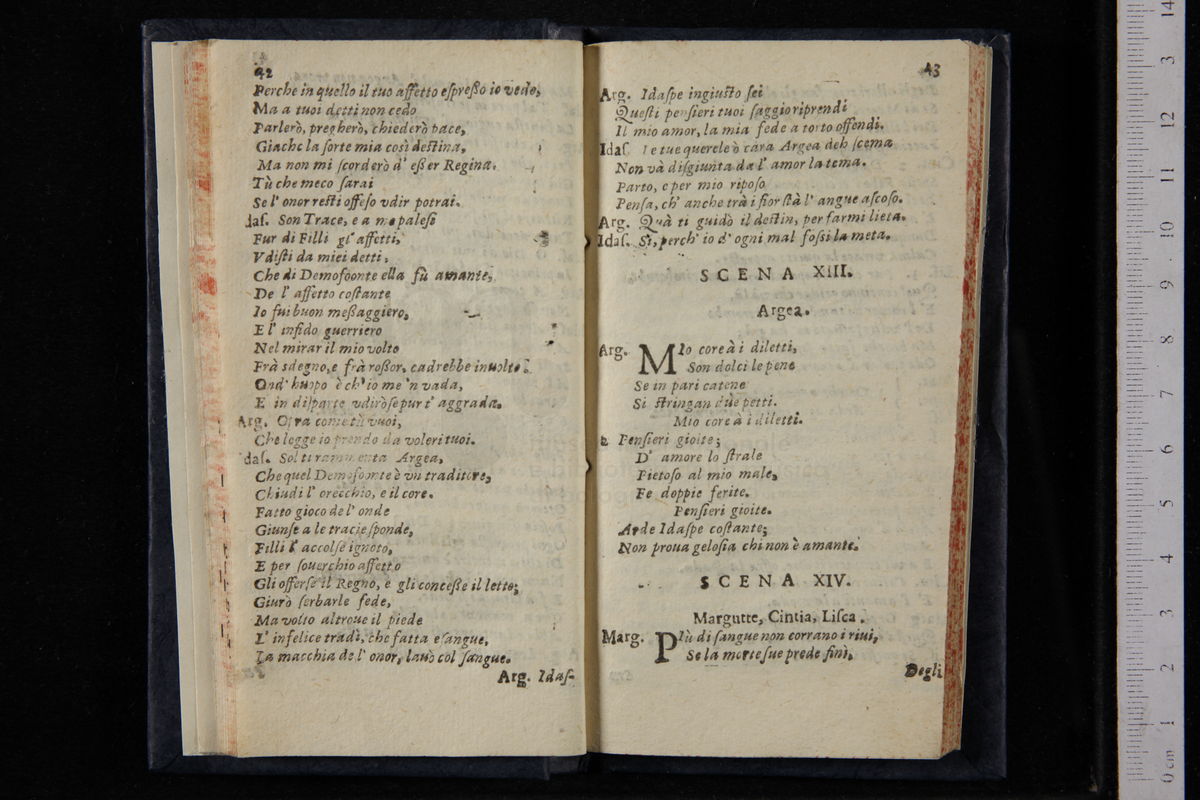 42
Perche in quello il tuo affetto espreßo io vedo,
Ma a tuoi detti non cedo
Parlerò, pregherò, chiederò pace,
Giache la sorte mia così destina,
Ma non mi scorderò d' eßer Regina.
Tù che meco sarai
Se l' onor resti offeso vdir potrai.
das. Son Trace, e a me palese
Fur di Filli gl' affetti,
Vdisti da miei detti,
Che di Demofoonte ella fù amante,
De l' affetto costante
Io fui buon meßaggiero,
E l' infido guerriero
Nel mirar il mio volto
Frà sdegno, e frà roßor, cadrebbe inuolto
Ond' huopo è ch' io me 'n vada,
E in disparte vdirò se pur t' aggrada.
Arg. Opra come tù vuoi,
Che legge io prendo da voleri tuoi.
das. Sol ti rammenta Argea,
Che quel Demofoonte è vn traditore,
Chiudi l' orecchio, e il core.
Fatto gioco de l' onde
Giunse a le tracie sponde,
Filli l' accolse ignoto,
E per souerchio affetto
Gli offerse il Regno, e gli conceße il letto;
Giurò serbarle fede,
Ma volto altroue il piede
L' infelice tradì, che fatta esangue,
La macchia de l' onor, lauò col sangue.
Arg. Idas.
43
Arg. Idaspe ingiusto sei
Questi pensieri tuoi saggio riprendi
Il mio amor, la mia fede a torto offendi.
Idas. Le tue querele ò cara Argea deh scema
Non và disgiunta da l' amor la tema.
Parto, e per mio riposo
Pensa, ch' anche trà i fior stà l' angue ascoso.
Arg. Quà ti guidò il destin, per farmi lieta.
Idas. Sì, perch' io d' ogni mal fossi la meta.
SCENA XIII.
Argea.
Arg. MIo core à i diletti,
Son dolci le pene
Se in pari catene
Si stringan dùe petti.
Mio core à i diletti.
2 Pensieri gioite;
D' amore lo strale
Pietoso al mio male,
Fe doppie ferite.
Pensieri gioite.
Arde Idaspe costante;
Non proua gelosia chi non è amante.
SCENA XIV.
Margutte, Cintia, Lisca.
Marg. PIù di sangue non corrano i riui,
Se la morte sue prede finì,
Degli